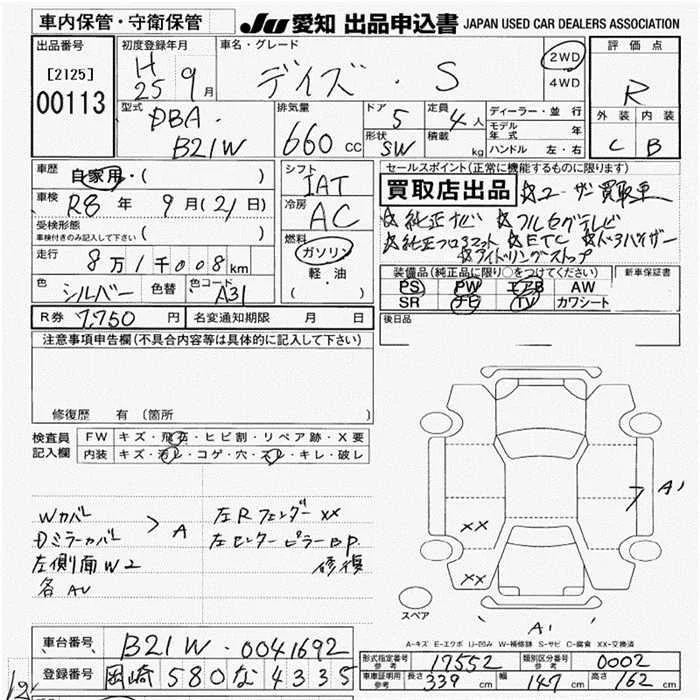 車内保管・守衛保管
JU 愛知 出品申込書 JAPAN USED CAR DEALERS ASSOCIATION
出品番号 [2125] 00113
初度登録年月 H25 9月
車名・グレード デイズ・S
2WD 4WD
評価点 R
外装 C 内装 B
型式 DBA・B21W
排気量 660 CC
ドア 5 形状 SW
定員 4人 積載 kg
ディーラー・並行
モデル年式 年
ハンドル 左・右
車歴 自家用・( )
車検 R8年 9月(21日)
受検形態 車検付きのみ記入して下さい ( )
走行 8万1千008km
色 シルバー 色替 色コード A31
シフト IAT
冷房 AC
燃料 ガソリン 軽・油 ( )
セールスポイント(正常に機能するものに限ります)
買取店出品 ☆ユーザー買取車
☆純正ナビ ☆フルセグテレビ
☆純正フロアマット ☆ETC ☆ドアバイザー
☆アイドリングストップ
装備品(純正品に限り○をつけてください) 新車保証書
PS PW エアB AW
SR ナビ TV カワシート
R券 7,750円 名変通知期限 月 日
後日品
注意事項申告欄(不具合内容等は具体的に記入して下さい)
修復歴 有(箇所
検査員記入欄
FW キズ・飛石・ヒビ割・リペア跡・X要
内装 キズ・汚レ・コゲ・穴・スレ・キレ・破レ
Wカバー
Dミラーカバー > A
左側面W2
各AU
左Rフェンダー XX
左センターピラーB.P.
修復
A1
XX
XX
A1
スペア
A-キズ E-エクボ U-凹み W-補修跡 S-サビ C-腐食 XX-交換済
車台番号 B21W-0041692
登録番号 岡崎 580 な 4335
形式指定番号 参考 17552 類別区分番号 参考 0002
車庫証明用 参考 長さ 339 cm 幅 147 cm 高さ 162 cm